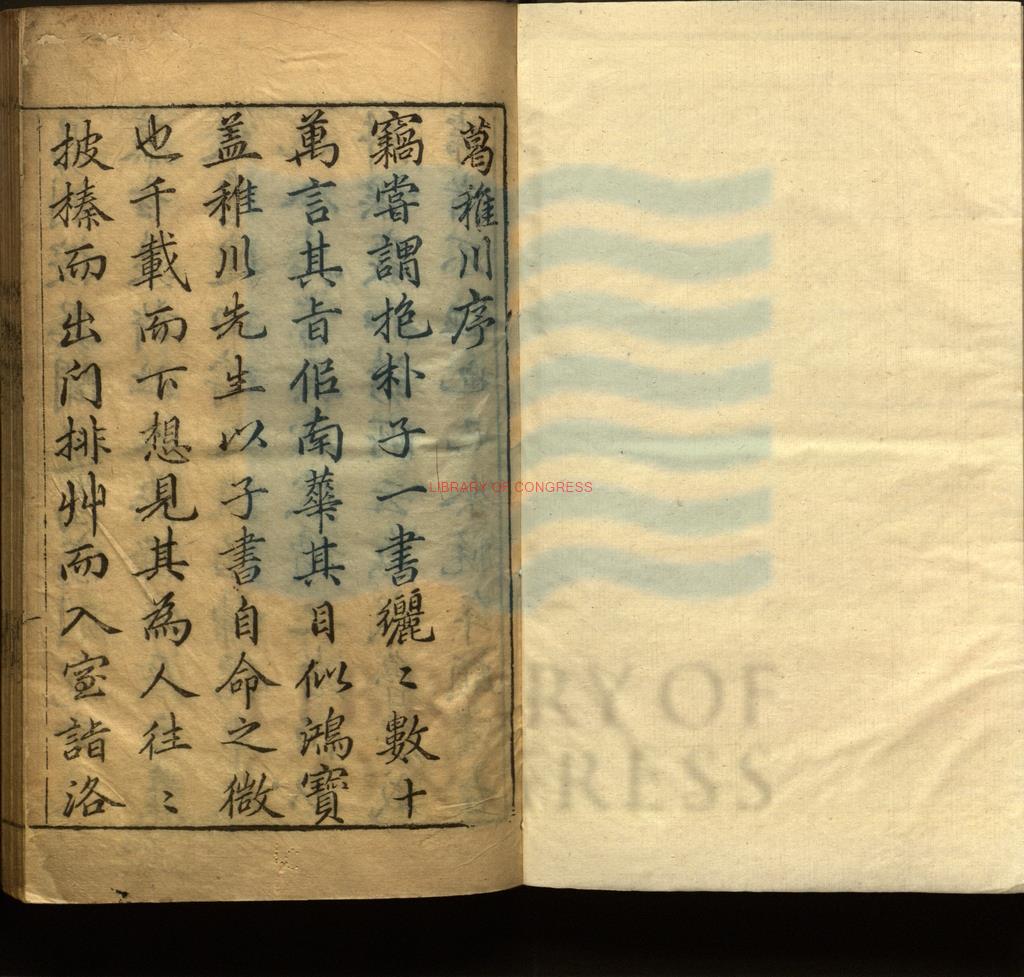 葛稚川序
竊嘗謂抱朴子一書纚〻數十
萬言其旨侣南華其目似鴻寶
盖稚川先生以子書自命之微
也千載而下想見其為人往〻
披榛而出门排艸而入室詣洛
LIBRARY OF CONGRESS
LIBRARY OF CONGRESS